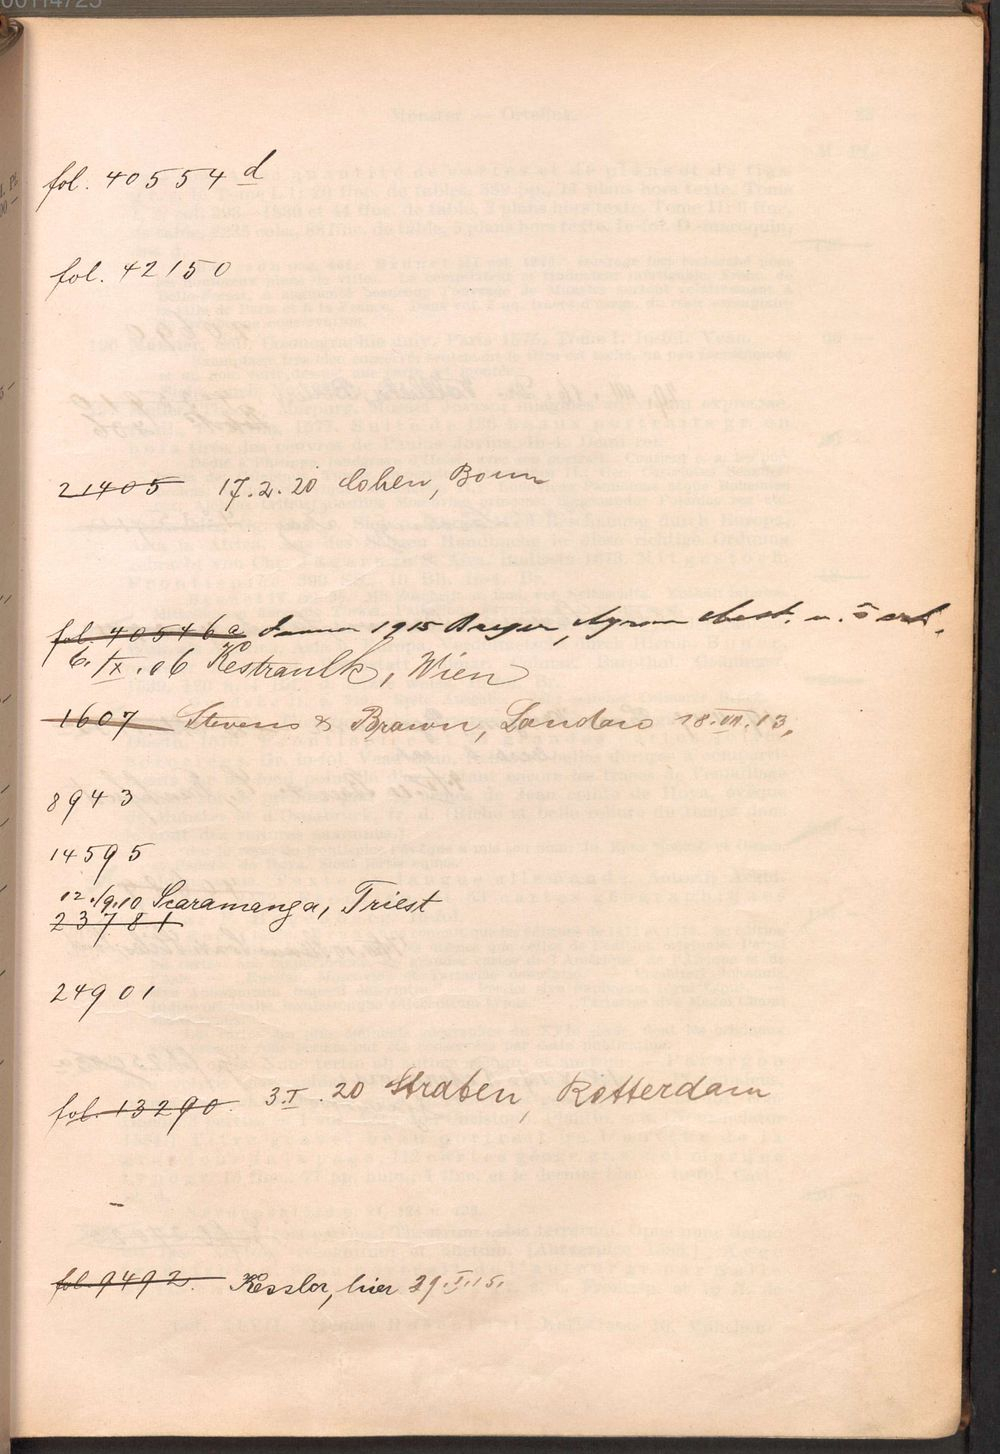 fol. 40554 d
fol. 42150
21405 17.2.20 Cohen, Bonn
fol. 40546a 1915
6./IX.06 Kestranek, Wien
1607 Stevens & Brown, London 18.VII.13.
8943
14595
12./9.10 Scaramanga, Triest
23781
24901
fol. 13290. 3.I.20 Straten, Rotterdam
fol. 9492. Kessler, hier 29.I.15.